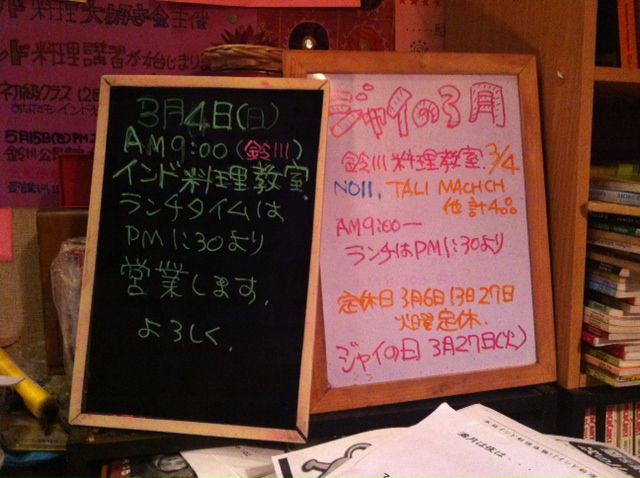 料理大好き会主催
料理講習が始まりま
初級クラス
3月4日(日)
AM9:00(鈴川)
インド料理教室
ランチタイムは
PM1:30より
営業します.
よろしく.
ジャイの3月
鈴川料理教室.3/4
NO11. TALI MACHCH
他計4品
AM9:00―
ランチはPM1:30より
定休日3月6日13日27日
火曜定休.
ジャイの日 3月27日(火)